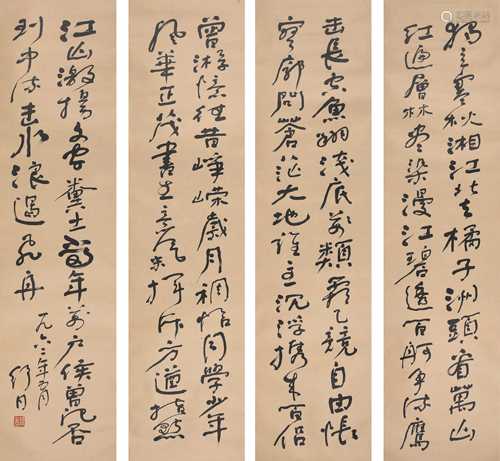 独立寒秋湘江北去橘子洲頭看萬山
红遍層林尽染漫江碧透百舸争流鹰
击長空魚翔浅底萬類霜天競自由悵
寥廓問蒼茫大地誰主沉浮携来百侣
曾游憶往昔崢嶸歲月稠恰同學少年
風華正茂書生意氣揮斥方遒指點
江山激揚文字糞土當年萬户侯曾记否
到中流击水浪遏飛舟
一九六二年五月
舒同